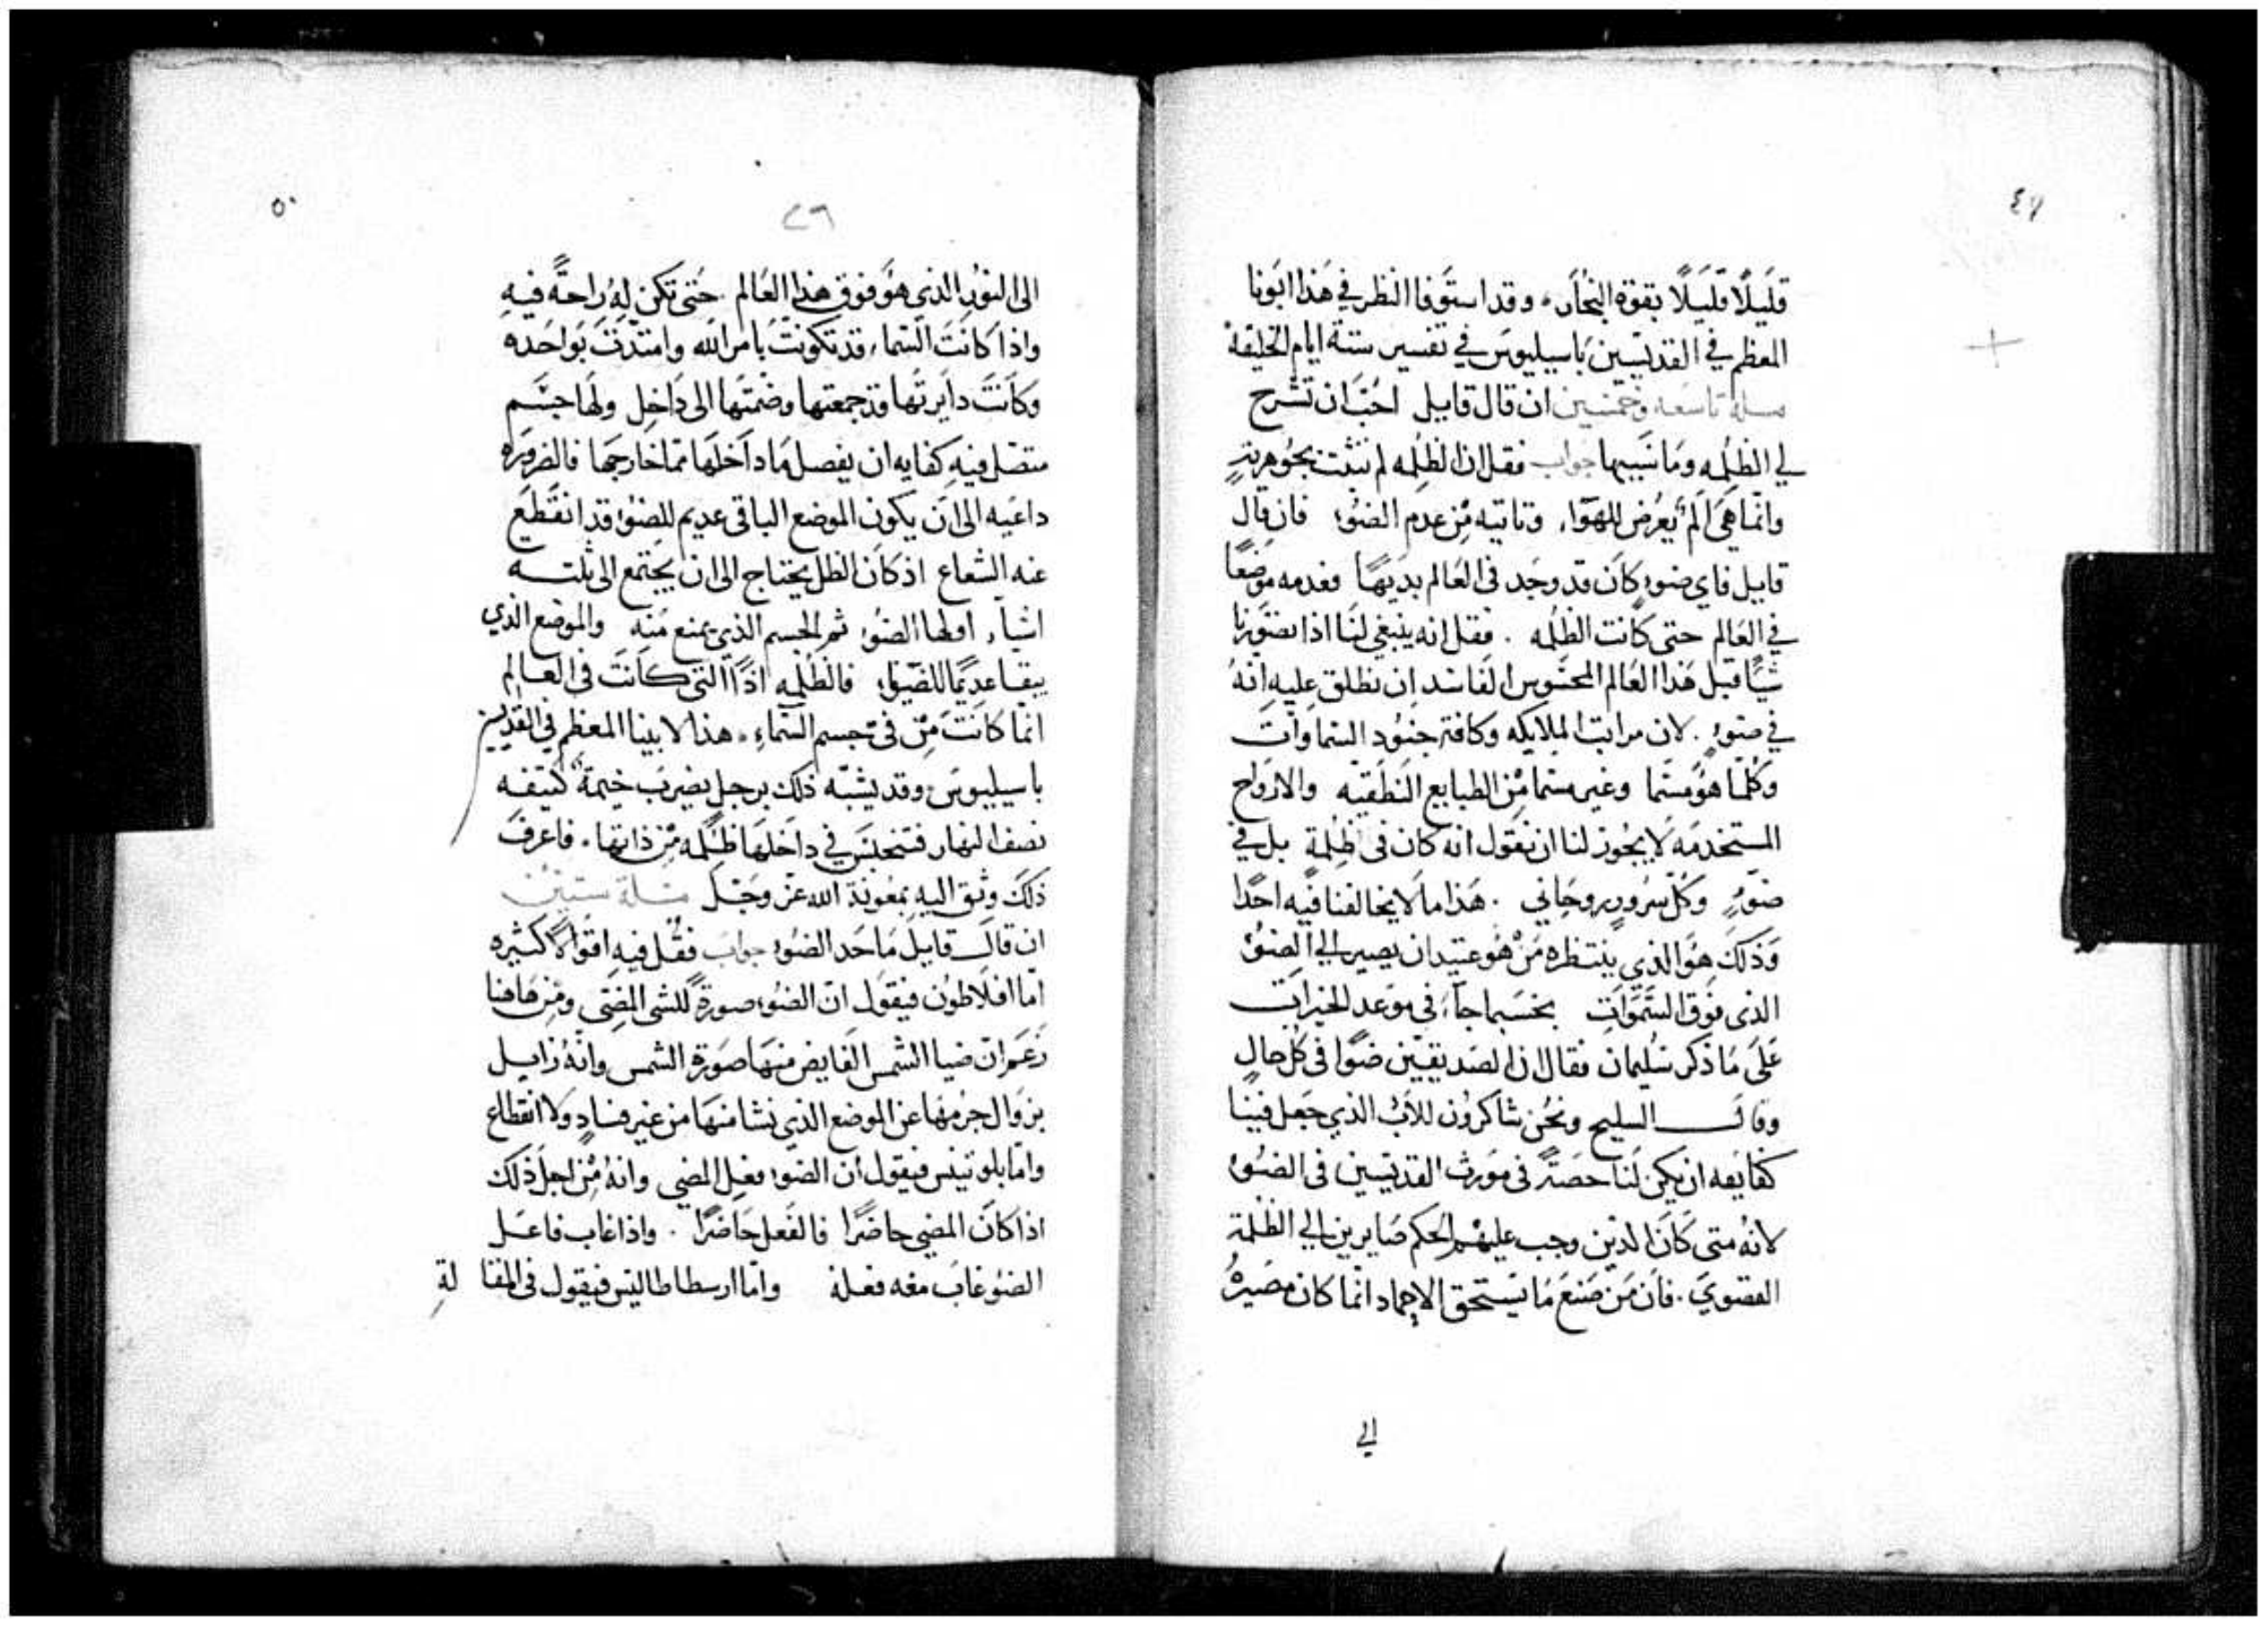 ٤٩
قليلًا قليلًا بقوة البخار، وقد استوفا النظر في هذا ابونا
المعظم في القديسين باسيليوس في تفسير ستة ايام الخليقة
مسلة تاسعه وخمسين ان قال قايل احب ان تشرح
لي الظلمه وما سببها جواب فقل ان الظلمه لم تثبت بجوهريتهِ
وانما هي الم يعرض للهوا، وتاتيه من عدم الضوء فان قال
قايل فاي ضوء كان قد وجد في العالم بديهًا فعدمه موضعًا
في العالم حتى كانت الظلمه . فقل انه ينبغي لنا اذا تصورنا
شيًا قبل هذا العالم المحسوس الفاسد ان نطلق عليه انهُ
في ضوءٍ . لان مراتب الملايكه وكافة جنود السماوات
وكلما هو مسما وغير مسما من الطبايع النطقيه والارواح
المستخدمه لا يجوز لنا ان نقول انه كان في ظلمة بل في
ضوءٍ وكل سرور روحاني . هذا ما لا يخالفنا فيه احدًا
وذلك هو الذي ينتظره من هو عتيد ان يصير الي الضوء
الذي فوق السموات بحسبما جاء في موعد الخيرات
على ما ذكر سليمان فقال ان الصديقين ضوًا في كل حالٍ
وقال السليح ونحن شاكرون للاب الذي جعل فينا
كفايه ان يكن لنا حصة في مورث القديسين في الضوء
لانه متى كان الذين وجب عليهم الحكم صايرين الي الظلمة
القصوي . فان من صنع ما يستحق الاحماد انما كان مصيرهُ
الي
٥٠
٢٦
الى النور الذي هو فوق هذا العالم . حتى تكن له راحةً فيهِ
واذا كانت السماء قد تكونت بامر الله وامتدت بواحده
وكانت دايرتها قد جمعتها وضمتها الى داخل ولها جسم
متصل فيه كفايه ان يفصل ما داخلها مما خارجها فالضروره
داعيه الى ان يكون الموضع الباقي عديم للضوء قد انقطع
عنه الشعاع اذ كان الظل يحتاج الى ان يجتمع الى ثلثه
اشياء اولها الضوء ثم الجسم الذي يمنع منه والموضع الذي
يبقا عديمًا للضيوا، فالظلمه اذًا التى كانت في العالم
انما كانت من في جسم السماء . هذا لابينا المعظم في القديسين
باسيليوس وقد يشبه ذلك برجل يضرب خيمة كثيفه
نصف النهار فتنحبس في داخلها ظلمه من ذاتها . فاعرف
ذلك وثق اليه بمعونة الله عز وجل مسلة ستين
ان قال قايل ما حد الضوء جواب فقل فيه اقوالًا كثيره
اما افلاطون فيقول ان الضوء صورةً للشى المضى ومن هاهنا
زعم ان ضيا الشمس الفايض منها صورة الشمس وانهُ زايل
بزوال جرمها عن الموضع الذي نشا منها من غير فسادٍ ولا انقطاع
واما بلوتينس فيقول ان الضوء فعل المضي وانهُ من اجل ذلك
اذا كان المضي حاضرًا فالفعل حاضرًا . واذا غاب فاعل
الضوء غاب معه فعله واما ارسطاطاليس فيقول في المقا لةِ